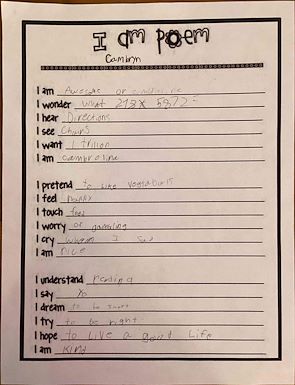 I am Poem
Cambryn
I am Awesome or
I wonder what 213 x 5872 =
I hear Directions
I see Chairs
I want 1 trillion
I am
I pretend to like vegetables
I feel happy
I touch feet
I worry of gambling
I cry when I
I am nice
I understand reading
I say Yo
I dream to be
I try to be right
I hope to Live a good Life
I am Kind